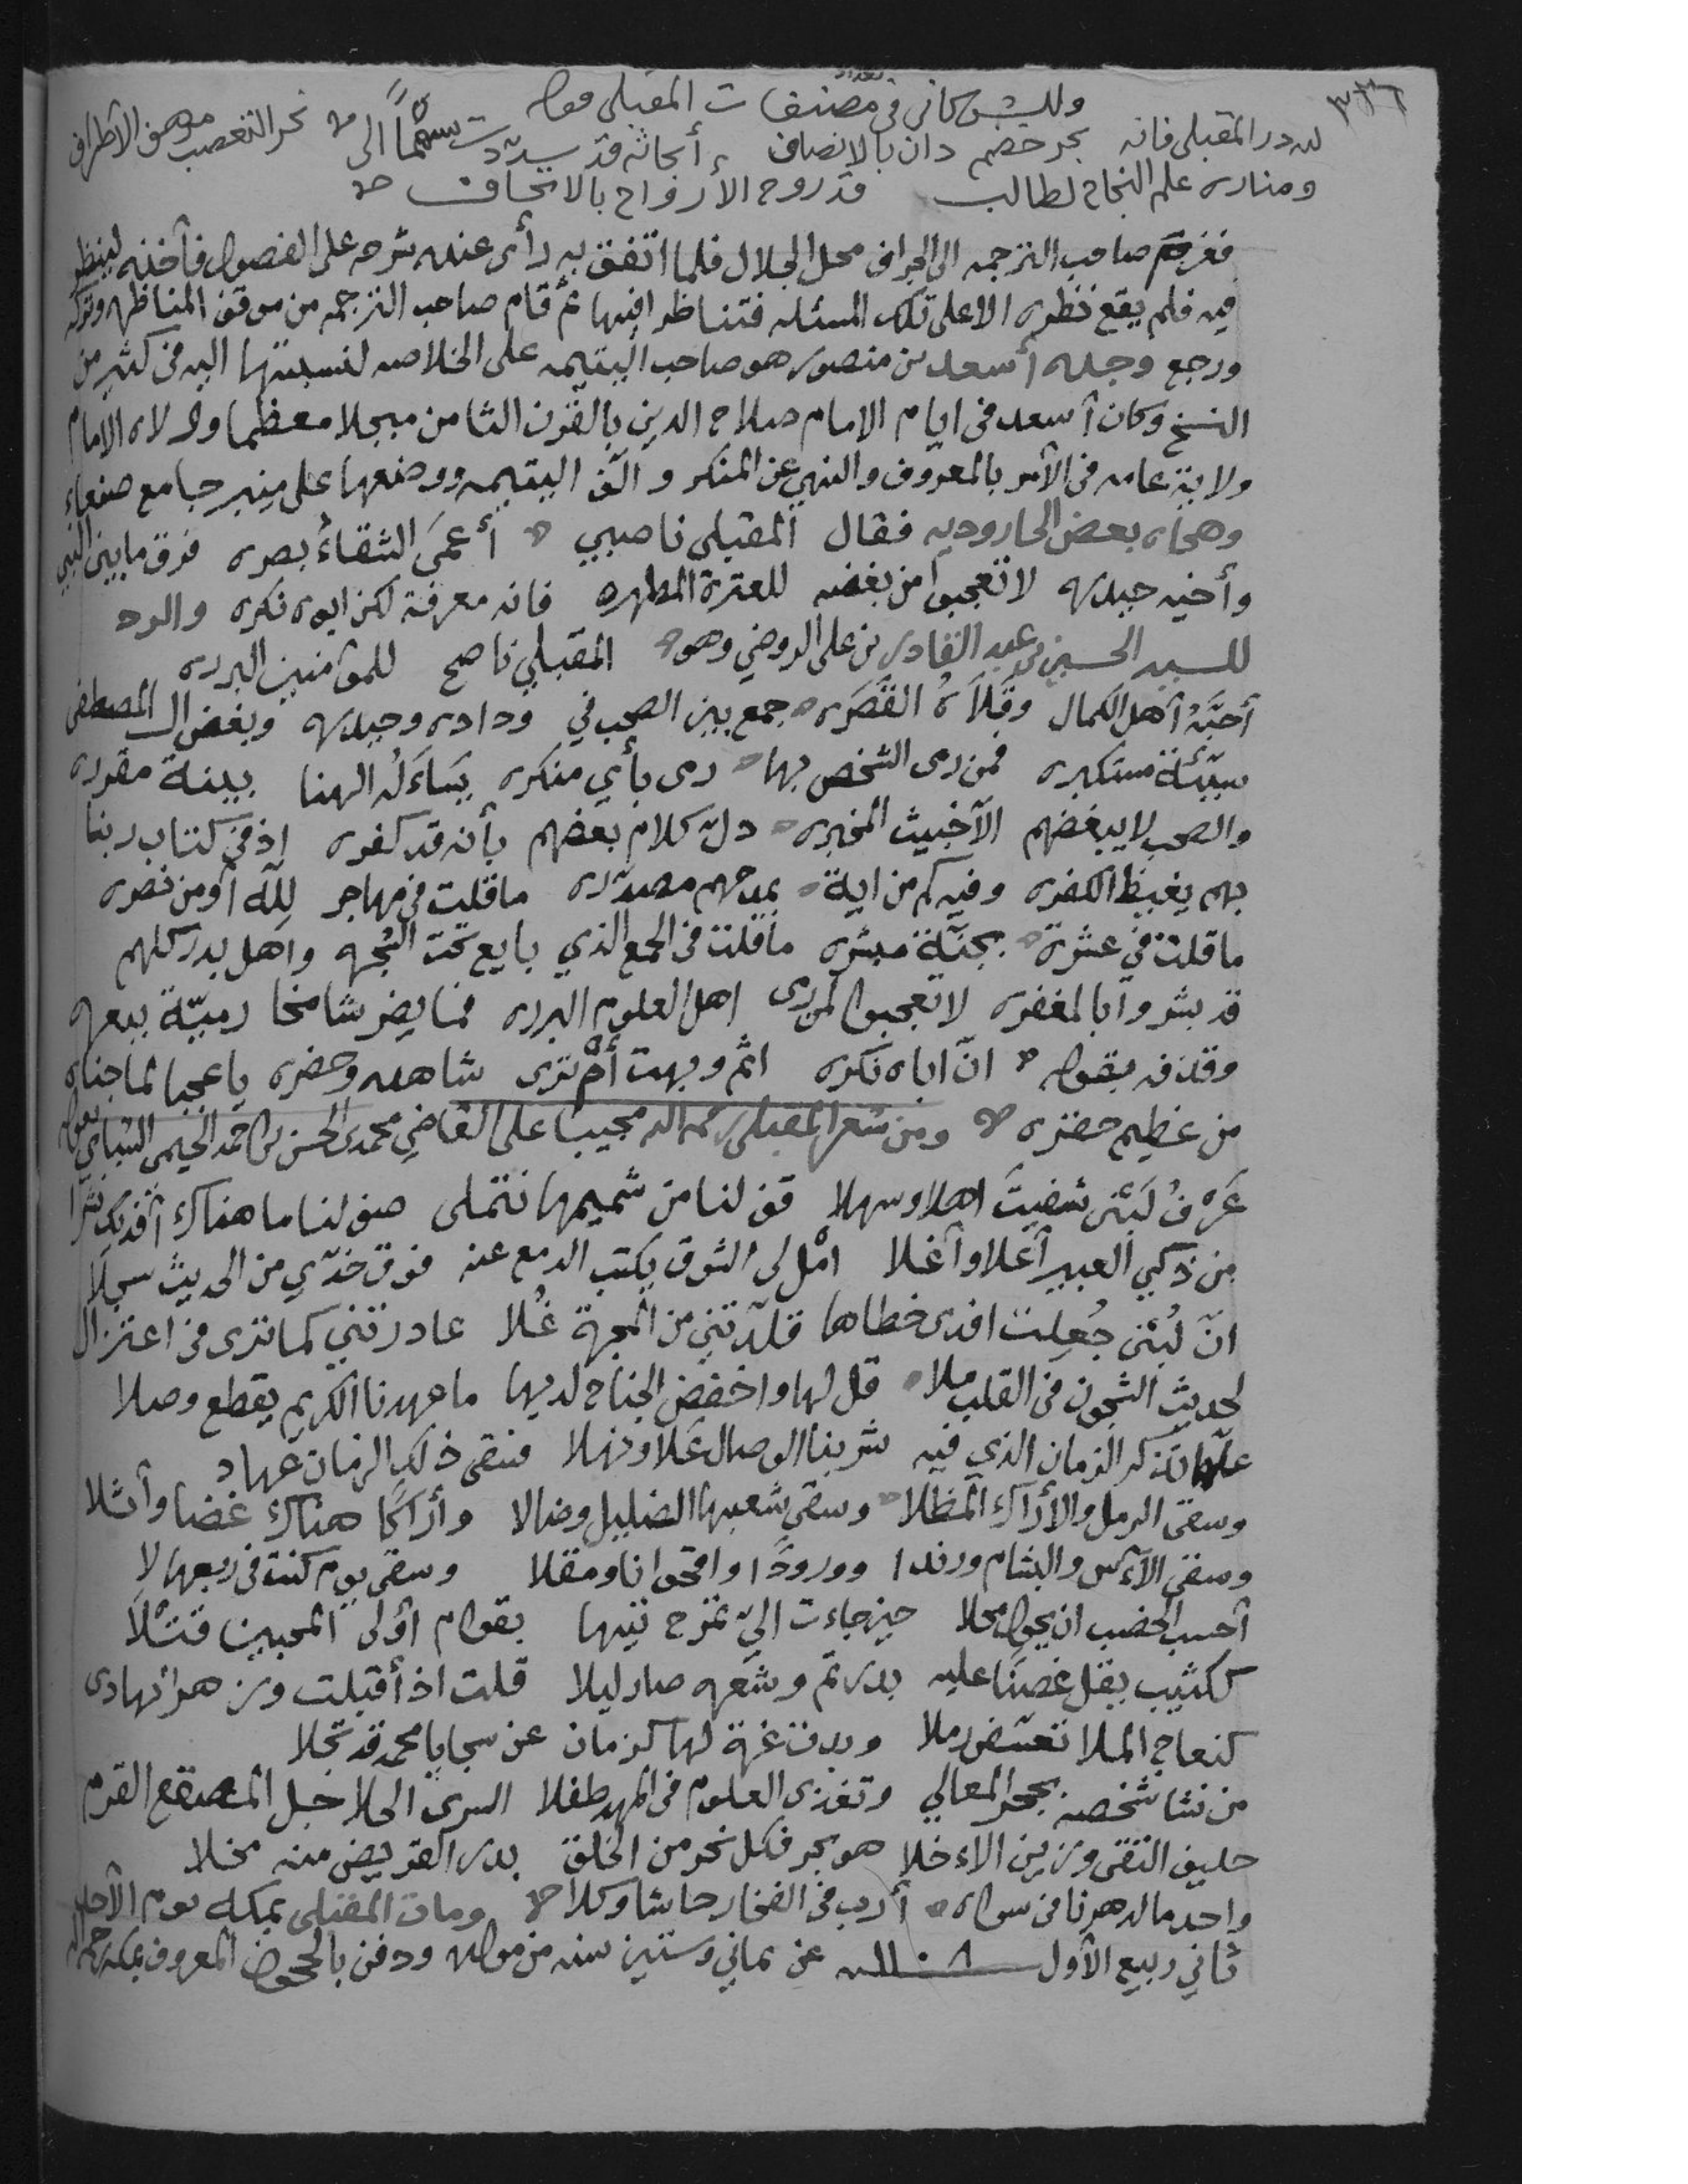 ٣٣٦
وللشوكاني في تعداد مصنفات المقبلي قوله
لله در المقبلي فانه بحر خضم دان بالانصاف أبحاثه قد سددت سهماً الى نحر التعصب مرهف الاطراف
ومناره علم النجاح لطالب قد روح الأرواح بالاتحاف
فغرم صاحب الترجمه الى الجراف محل الجلال فلما اتفق به رأى عنده شرحه على الفصول فأخذه لينظر
فيه فلم يقع نظره الا على تلك المسئله فتناظرا فيها ثم قام صاحب الترجمه من موقف المناظره وتركه
ورجع وجده أسعد بن منصور هو صاحب اليتيمه على الخلاصه لنسبتها اليه في كثير من
النسخ وكان أسعد في ايام الامام صلاح الدين بالقرن الثامن مبجلا معظما وولاه الامام
ولاية عامه في الأمر بالمعروف والنهي عن المنكر وألف اليتيمه ووضعها على منبر جامع صنعاء
وهجاه بعض الجاروديه فقال المقبلي ناصبي أعمى الشقاءُ بصره فرق ما بين النبي
وأخيه حيدره لا تعجبوا من بغضه للعترة المطهره فامه معرفة لكن ابوه نكره والرد
للسيد الحسين بن عبد القادر بن علي الروضي وهو المقبلي ناصح للمؤمنين البرره
أحبَّهُ أهل الكمال وقَلاَهُ القَصَره جمع بين الصحب في وداده وحيدره وبغض ال المصطفى
سيّئة مستكبره فمن رمى الشخص بها رمى بأي منكره يَسأله الهنا ببينة مقرره
والصحب لا يبغضهم الا خبيث المخبره دل كلام بعضهم بأنه قد كفره اذ في كتاب ربنا
بهم يغيظ الكفره وفيه كم من اية بمدحهم مصدّره ما قلت في مهاجر لله أو من نصره
ما قلت في عشرة بجنّة مبشره ما قلت في الجمع الذي بايع تحت الشجره وأهل بدر كلهم
قد بشروا بالمغفره لا تعجبوا لمن رمى اهل العلوم البرره فما يضر شامخا رميّة ببعره
وقذفه بقوله انّ اباه نكره اثم وبهت أم ترى شاهده وحضره يا عجبا لما جناه
من عظيم حضره ومن شعر المقبلي رحمه الله مجيبا على القاضي محمد بن الحسن بن احمد الحيمي الشبامي بقوله
عَرْفُ لُبْنى شفيتَ اهلا وسهلا قف لنا من شميمها نتملى صف لنا ما هناك أفديك نشرا
من ذكي العبير أعلا وأغلا امْل لي الشوق يكتب الدمع عنه فوق خدّي من الحديث سجلاّ
انّ لُبْنى جُعِلت افدى خطاها قلّدتني من المحبة غُلا غادرتني كما ترى في اعتزال
لحديث الشجون في القلب ملا قل لها واخفض الجناح لديها ما عهدنا الكريم يقطع وصلا
علّها تذكر الزمان الذي فيه شربنا الوصال عَلا ونهلا فسقى ذلك الزمان عهاد
وسقى الرمل والأراك المظلا وسقى شعبها الضليل وضالا وأراكًا هناك غضا وأثلا
وسقى الآس والبشام ورندا وورودًا واقحوانا ومقلا وسقى يوم كنت في ربعها لا
أحسب الخصب ان يحول محلا حين جاءت اليّ تمزح تيها بقوام أولى المحبين قتلاً
ككثيب يقل غصنًا عليه بدر تم وشعره صار ليلا قلت اذ أقبلت وزهر تهادى
كنعاج الملا تعسّفن رملا وبدت غرة لها كزمان عن سجايا محمد قد تجلا
من نشا شخصه بحجر المعالي وتغذى العلوم في المهد طفلا السري الحلاحل المصقع القرم
حليف التقى وزين الاء خلا هو بحر فكل نحر من الخلق بدر القريض منه محلا
واحد ما لدهرنا من سواه أدب في الفخار حاشا وكلا ومات المقبلي بمكه يوم الأحد
ثاني ربيع الأول سنه ١١٠٨ عن ثماني وستين سنه من مولده ودفن بالحجون المعروف بمكه رحمه الله